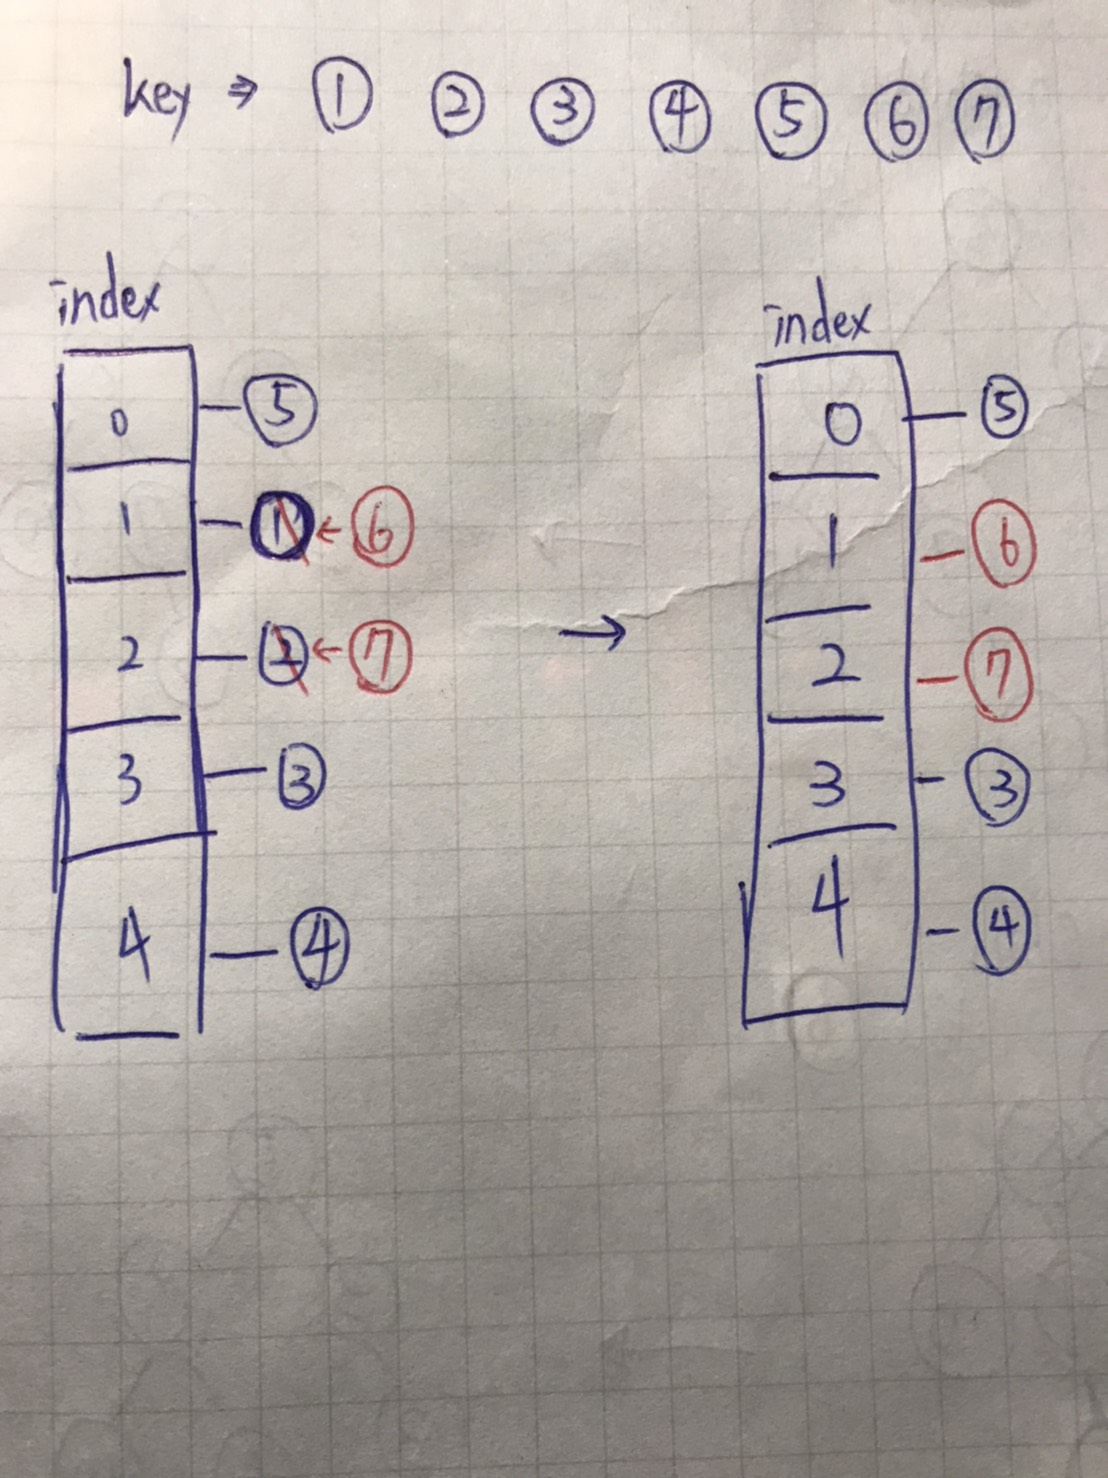 key ⇒ ① ② ③ ④ ⑤ ⑥ ⑦
index
0 — ⑤
1 — ① ← ⑥
2 — ② ← ⑦
3 — ③
4 — ④
→
index
0 — ⑤
1 — ⑥
2 — ⑦
3 — ③
4 — ④